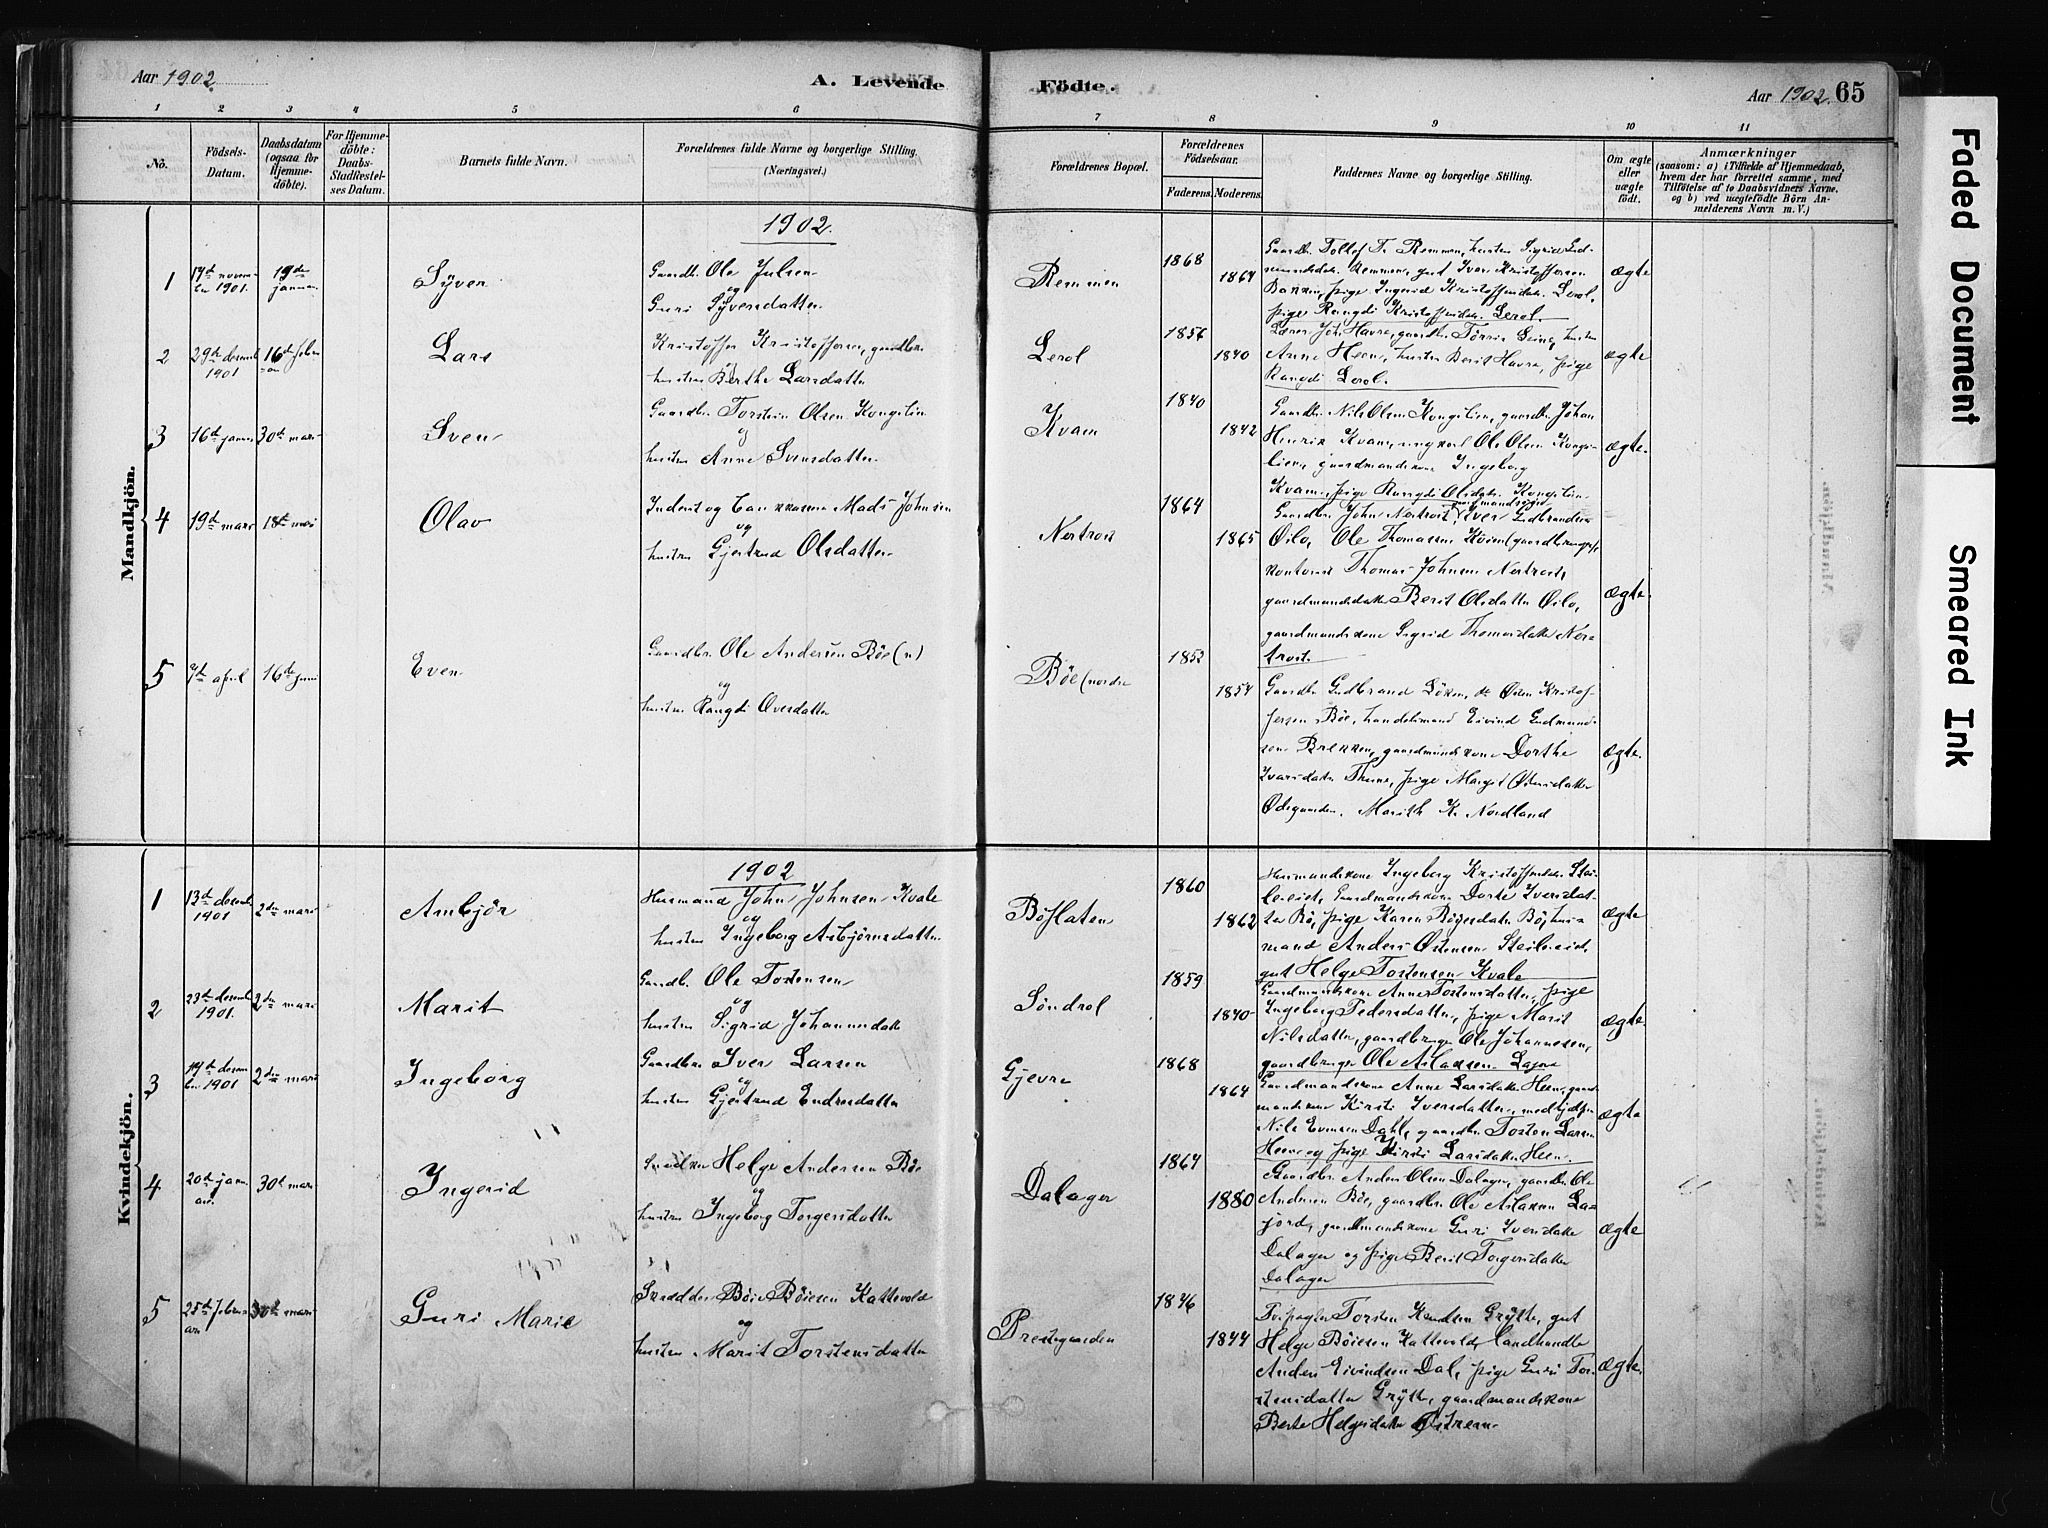 Aar 1902.
A. Levende
Födte.
Aar 1902. 65
1 2 3 4 5 6 7 8 9 10 11
No.
Födsels-
Datum.
Daabsdatum
(ogsaa for
Hjemme-
döbte).
For Hjemme-
döbte:
Daabs-
Stadfæstel-
ses Datum.
Barnets fulde Navn.
Forældrenes fulde Navne og borgerlige Stilling.
(Næringsvei.)
Forældrenes Bopæl.
Forældrenes
Födselsaar.
Faderens. Moderens.
Faddernes Navne og borgerlige Stilling.
Om ægte
eller
uægte
födt.
Anmærkninger
(saasom: a) i Tilfælde af Hjemmedaab,
hvem der har forrettet samme, med
Tilföielse af to Daabsvidners Navne,
og b) ved uægtefödte Börn An-
melderens Navn m. V.)
Mandkjön.
1902.
1
17de novem-
ber 1901.
19de
januar
Syver
Gaardbr. Ole Julsen
og
Guri Syversdatter
Remmen
1868
1864
Gaardbr. Tollef T. Remmen, hustru Sigrid Gud-
mundsdatr. Remmen, gut Iver Kristoffersen
Bakken, pige Ingerid Kristoffersdatr. Lerol,
pige Rangdi Kristoffersdatr. Lerol.
ægte
2
29de decemb
1901
16de febru
ar
Lars
Kristoffer Kristoffersen, gaardbr.
hustru Berthe Larsdatter
Lerol
1856
1840
Anne Heen, hustru Berit Havre, pige
Rangdi Lerol.
ægte
3
16de januar
30te mars
Sven
Gaardbr. Torstein Olsen Kongslien
og
hustru Anne Svensdatter
Kvam
1840
1842
Gaardbr. Nils Olsen Kongslien, gaardbr. Johan
Henrik Kvam, ungkarl Ole Olsen Kongs-
lien, gaardmandskone Ingeborg
Kvam, pige Rangdi Olsdatr. Kongslien
ægte.
4
19de mars
18de mai
Olav
Mads Johnsen
og
hustru Gjertrud Olsdatter
Nertrost
1864
1865
Gaardbr. John Nertrost, Iver Gudbrandsen
Øilo, Ole Thomassen
Thomas Johnsen Nertrost,
gaardmandsdatter Berit Olsdatter Øilo,
gaardmandskone Sigrid Thomasdatter Ner-
trost.
ægte.
5
7de april
16de juni
Even
Gaardbr. Ole Andersen Böe (n)
og
hustru Rangdi Ovesdatter
Böe (nordre
1852
1854
Gaardbr. Gudbrand Löken, do Osten Kristof-
fersen Böe, handelsmand Eivind Gudmund-
sen Brekken, gaardmandskone Dorthe
Iversdatter Thune, pige Margit Ostensdatter
Ødegaarden, Marith K. Nordland
ægte.
Kvindekjön.
1902
1
13de decemb
1901
2den mars
Ambjör
Husmand John Johnsen Kvale
og
hustru Ingeborg Asbjörnsdatter
Böflaten
1860
1862
Husmandskone Ingeborg Kristoffersdatr. Stei-
leeide, Gaardmandskone Dorte Iversdat-
ter Bö, pige Karen Böyesdatter Bö, hus-
mand Anders Østensen Steileeide,
gut Helge Tostensen Kvale
ægte
2
23de decemb
1901.
2den mars
Marit
Gaardb. Ole Tostensen
og
hustru Sigrid Johannesdatr
Söndrol
1859
1840
Gaardmandskone Anne Tostensdatter, pige
Ingeborg Pedersdatter, pige Marit
Nilsdatter, gaardbruger Ole Johannesen,
gaardbruger Ole Aslaksen
ægte.
3
19de decem
ber 1901
2den mars
Ingeborg
Gaardbr. Iver Larsen
og
hustru Gjertrud Endresdatter
Gjevre
1868
1864
Gaardmandskone Anne Larsdatter Heen, gaard-
mandskone Kirsti Iversdatter, medhjælper
Nils Evensen Dahl, gaardbr. Tosten Larsen
Heen og pige Kirsti Larsdatter Heen.
ægte
4
20de janu
ar.
30te mars
Ingerid
Snedker Helge Andersen Böe
og
hustru Ingeborg Torgersdatter
Dalager
1864
1880
Gaardbr. Anders Olsen Dalager, gaardbr. Ole
Andersen Böe, gaardbr. Ole Aslaksen La-
jord, gaardmandskone Guri Iversdatter
Dalager og pige Berit Torgersdatter
Dalager
ægte
5
25de febru
ar
30te mars
Guri Marie
Skrædder Böie Böiesen Kattevold
og
hustru Marit Torstensdatter
Prestegaarden
1846
1844
Torsten Knudsen Grytte, gut
Helge Böiesen Kattevold, landhandler
Anders Eivindsen Dal, pige Guri Tor-
stensdatter Grytte, gaardmandskone
Berte Helgesdatter Østrem
ægte.
Faded Document
Smeared Ink